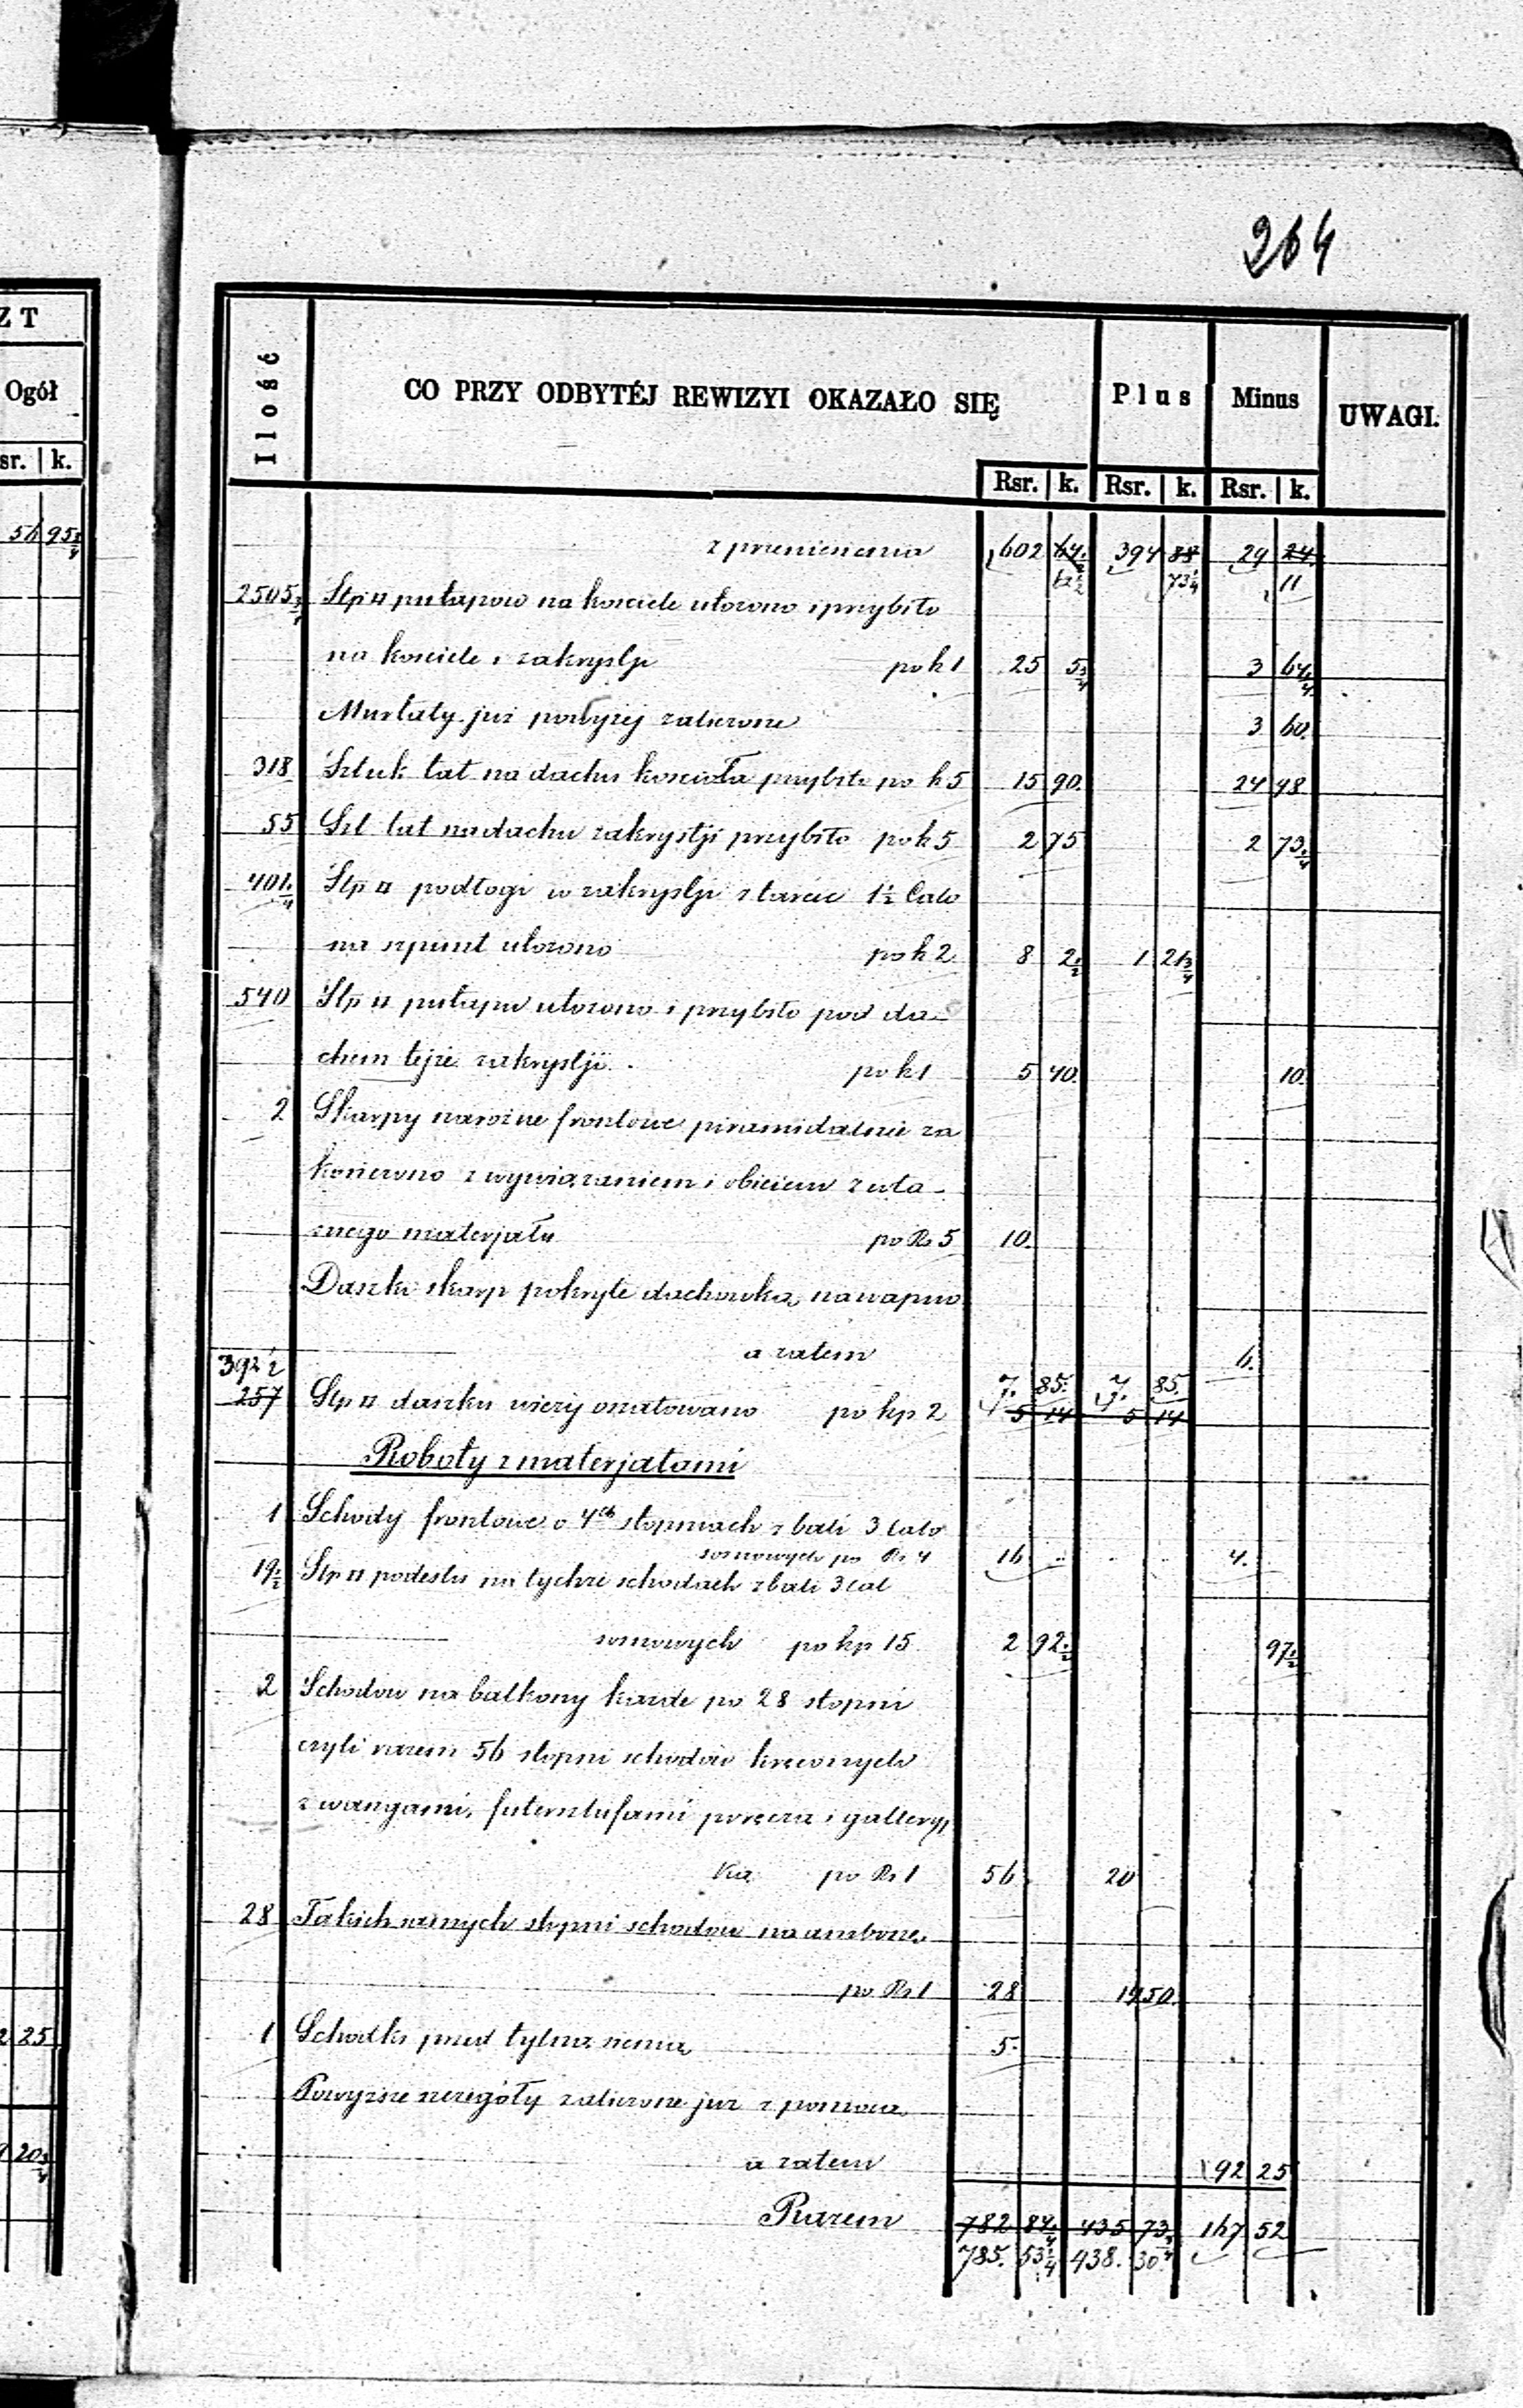 264
ZT
Ogół
sr. k.
56 95 3/4
2 25
9 20 3/4
Ilość CO PRZY ODBYTÉJ REWIZYI OKAZAŁO SIĘ Plus Minus UWAGI.
Rsr. k. Rsr. k. Rsr. k.
z przeniesienia 602 64 1/2 394 88 29 24
62 1/2 73 1/4 11
2505 3/4 Stp □ pułapow na kościele ułozono i przybito
na kościele i zakrystji po k 1 25 5 3/4 3 64 1/4
Murłaty już powyżej zaliczone 3 60
318 Sztuk łat na dachu kościoła przybito po k 5 15 90 24 48
55 Szt łat na dachu zakrystji przybito po k 5 2 75 2 73 3/4
401 1/4 Stp □ podłogi w zakrystji z tarcic 1 1/2 calo
na szpunt ułozono po k 2 8 2 1/2 1 21 3/4
540 Stp □ pułapu ułozono i przybito pod da-
chem tejże zakrystji po k 1 5 40 10
2 Skarpy narożne frontowe piramidalnie za
kończono z wywiązaniem i obiciem z wła-
snego materjału po Rs 5 10
Daszki skarp pokryte dachówką na wapno
a zatem 6.
392 1/2 7. 85. 7. 85.
257 Stp □ daszku wieży oszalowano po kp 2 5 14 5 14
Roboty z materjałami
1 Schody frontowe o 4ch stopniach z bali 3 calo
sosnowych po Rs 4 16 .. 4.
19 1/2 Stp □ podestu na tychże schodach z bali 3 cal
sosnowych po kp 15 2 92 1/2 97 1/2
2 Schodow na balkony każde po 28 stopni
czyli razem 56 stopni schodów kręconych
z wangami, futersztufami poręczą i galleryj
ką po Rs 1 56 20
28 Takich samych stopni schodow na ambonę
po Rs 1 28 19 50
1 Schodki przed tylną sienią 5.
Powyższe szczegóły zaliczone już z pomocą
a zatem 92 25
Razem 782 82 1/4 435 73 167 52
785. 53 1/4 438. 30